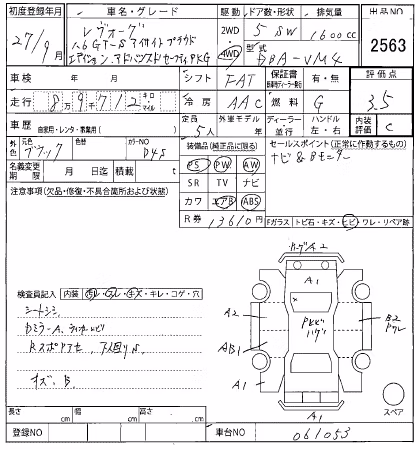 初度登録年月 車名・グレード 駆動 ドア数・形状 排気量 出品NO
27年9月 レヴォーグ 2WD 5 SW 1600cc 2563
1.6GT-S アイサイト プラウド 4WD 型式 DBA-VM4
エディション アドバンスドセーフティPKG
車検 年 月 シフト FAT 保証書 有・無 評価点
走行 8万9千712 キロ マイル 冷房 AAC 燃料 G 3.5
車歴 自家用・レンタ・家業用( ) 定員 5人 外車モデル 年 ディーラー 並行 ハンドル 左・右 内装評価 C
外色 元色 ブラック 色替 カラーNO D4S 装備品(純正品に限る) セールスポイント(正常に作動するもの)
名義変更期限 月 日迄 積載 t PS PW AW ナビ&Bモニター
注意事項(欠品・修復・不具合箇所および状態) SR TV ナビ
カワ エアB ABS
R券 13610円 Fガラス トビ石・キズ・ヒビ・ワレ・リペア跡
A1
検査員記入 内装 汚レ・スレ・キズ・キレ・コゲ・穴
シートシミ
A2
B2
AB1
A1
キズ・B
スペア
A1
長さ cm 幅 cm 高さ cm
登録NO 車台NO 061053